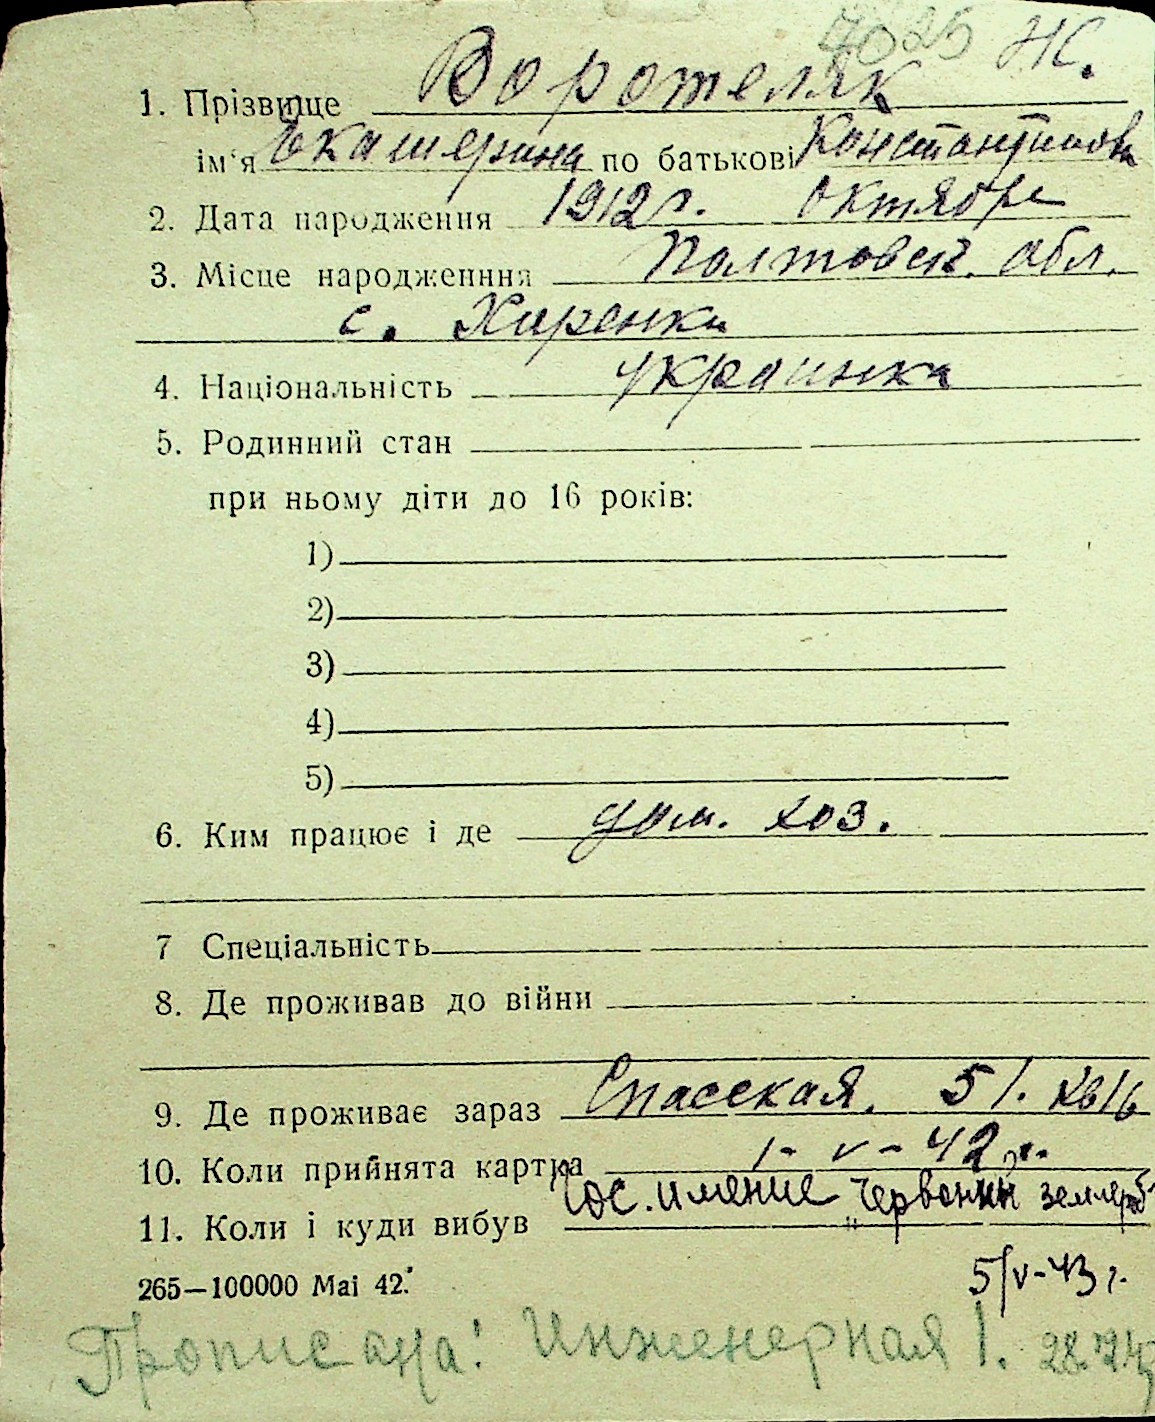 7025 Ж.
1. Прізвище Воротеляк
ім'я Екатерина по батькові Константинова
2. Дата народження 1912 г. октября
3. Місце народженння Полтовск. обл.
с. Харенки
4. Національність украинка
5. Родинний стан
при ньому діти до 16 років:
1)
2)
3)
4)
5)
6. Ким працює і де дом. хоз.
7 Спеціальність
8. Де проживав до війни
9. Де проживає зараз Спасская. 51.
10. Коли прийнята картка 1-V-42 г.
11. Коли і куди вибув Гос. имение "Червоний землероб"
265—100000 Mai 42.
5/V-43 г.
Прописана: Инженерная 1.